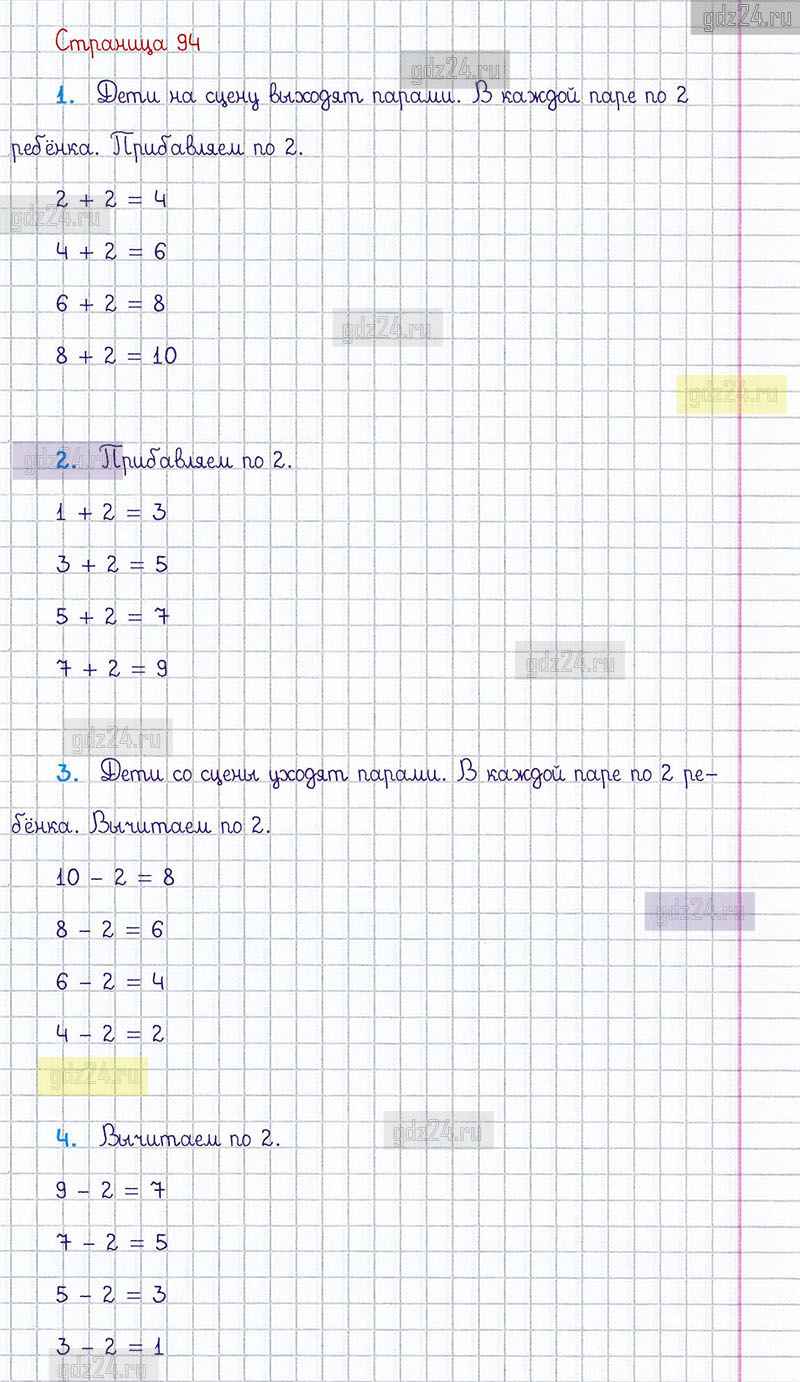 gdz24.ru
Страница 94
gdz24.ru
1. Дети на сцену выходят парами. В каждой паре по 2
ребёнка. Прибавляем по 2.
2 + 2 = 4
gdz24.ru
4 + 2 = 6
6 + 2 = 8
gdz24.ru
8 + 2 = 10
gdz24.ru
gdz24.ru
2. Прибавляем по 2.
1 + 2 = 3
3 + 2 = 5
5 + 2 = 7
gdz24.ru
7 + 2 = 9
gdz24.ru
3. Дети со сцены уходят парами. В каждой паре по 2 ре-
бёнка. Вычитаем по 2.
10 - 2 = 8
gdz24.ru
8 - 2 = 6
6 - 2 = 4
4 - 2 = 2
gdz24.ru
gdz24.ru
4. Вычитаем по 2.
9 - 2 = 7
7 - 2 = 5
5 - 2 = 3
3 - 2 = 1
gdz24.ru